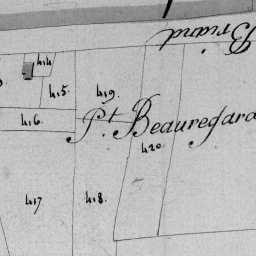 Briand
414
415.
419.
416.
Pt. Beauregard
420.
417
418.